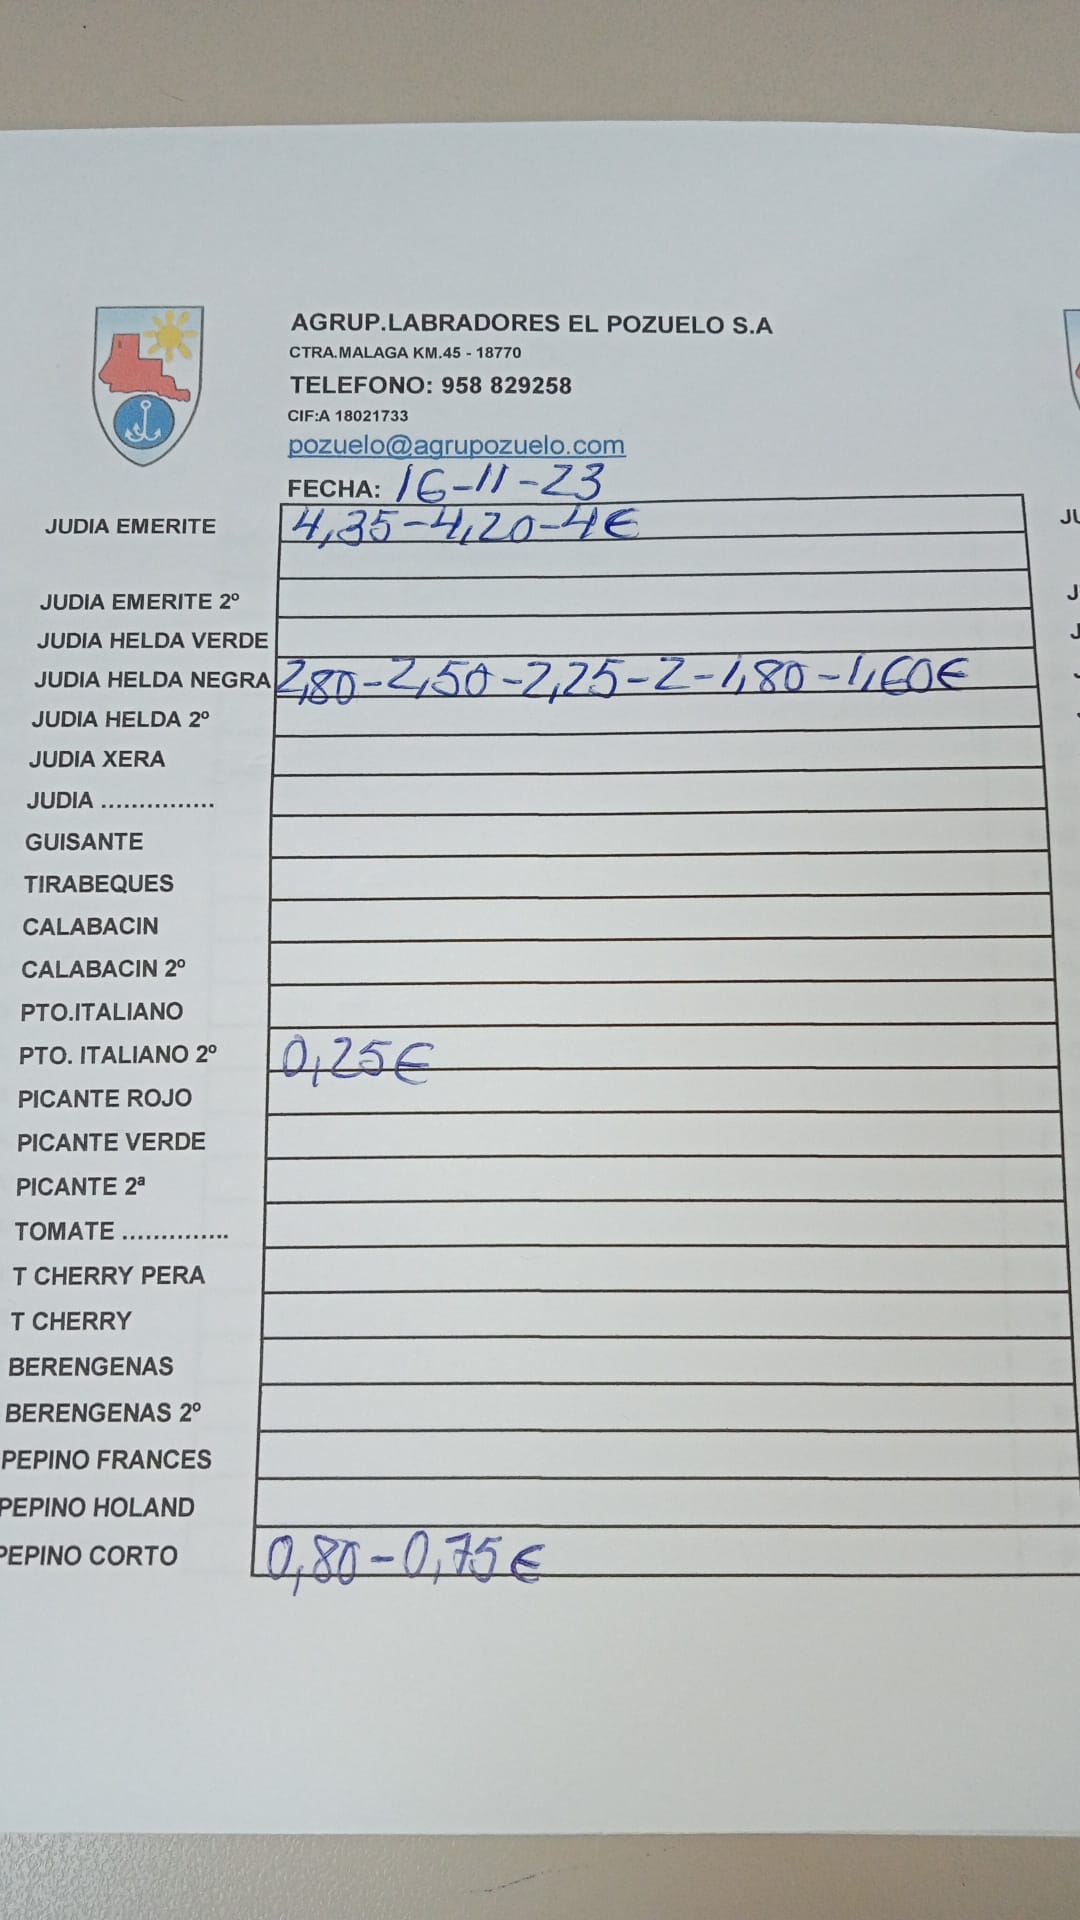 AGRUP.LABRADORES EL POZUELO S.A
CTRA.MALAGA KM.45 - 18770
TELEFONO: 958 829258
CIF:A 18021733
pozuelo@agrupozuelo.com
FECHA: 16-11-23
JUDIA EMERITE 4,35-4,20-4€
JUDIA EMERITE 2º
JUDIA HELDA VERDE
JUDIA HELDA NEGRA 2,80-2,50-2,25-2-1,80-1,60€
JUDIA HELDA 2º
JUDIA XERA
JUDIA ...............
GUISANTE
TIRABEQUES
CALABACIN
CALABACIN 2º
PTO.ITALIANO
PTO. ITALIANO 2º 0,25€
PICANTE ROJO
PICANTE VERDE
PICANTE 2ª
TOMATE ..............
T CHERRY PERA
T CHERRY
BERENGENAS
BERENGENAS 2º
PEPINO FRANCES
PEPINO HOLAND
PEPINO CORTO 0,80-0,75€